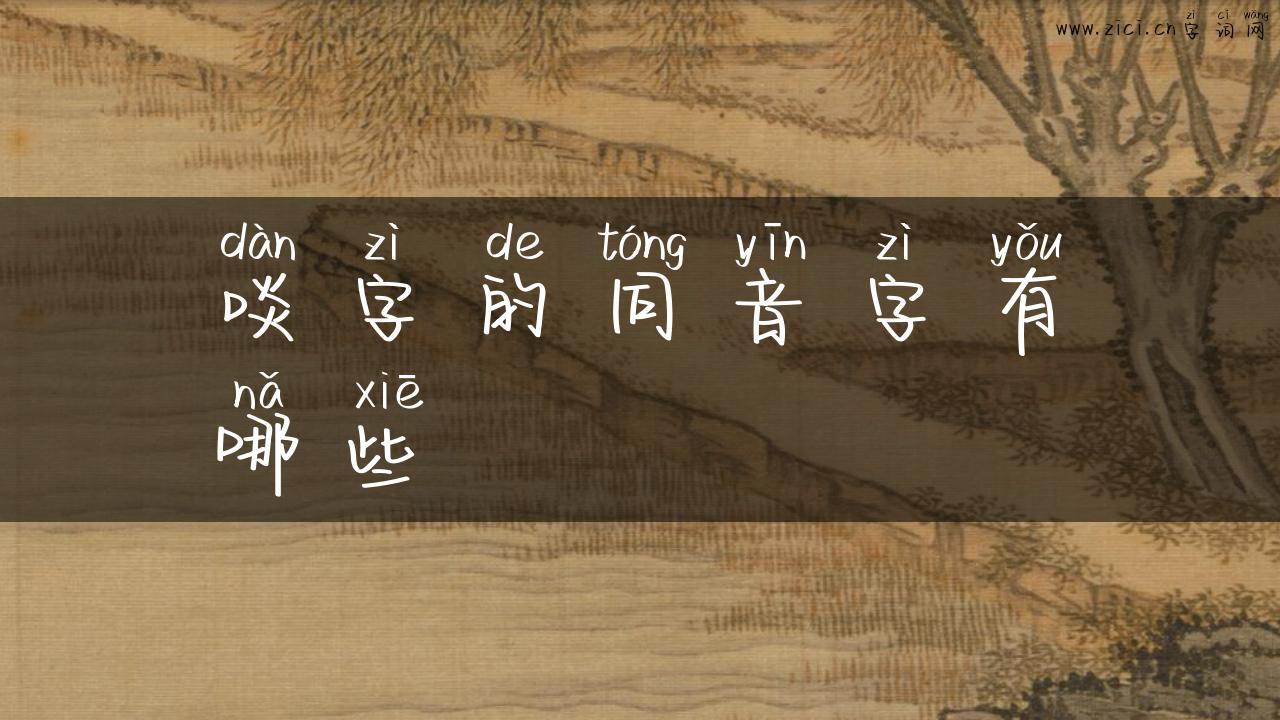 zì cí wǎng
www.zici.cn字词网
dàn zì de tóng yīn zì yǒu
啖字的同音字有
nǎ xiē
哪些